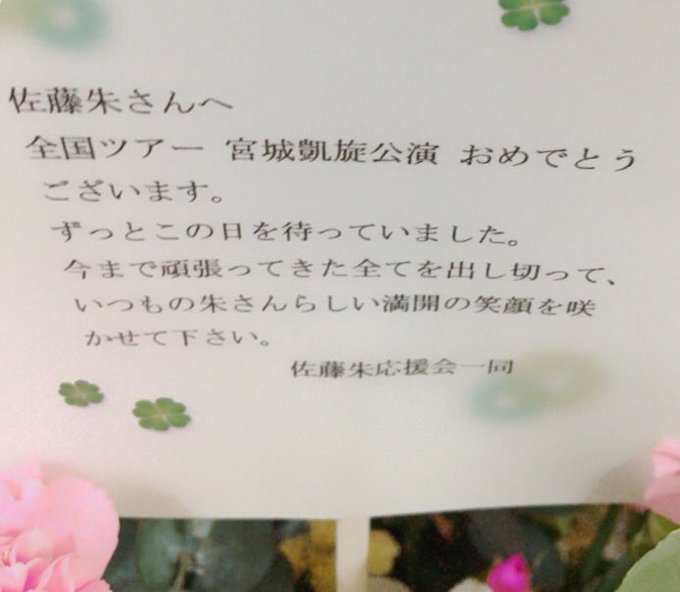 佐藤朱さんへ
全国ツアー 宮城凱旋公演 おめでとう
ございます。
ずっとこの日を待っていました。
今まで頑張ってきた全てを出し切って、
いつもの朱さんらしい満開の笑顔を咲
かせて下さい。
佐藤朱応援会一同